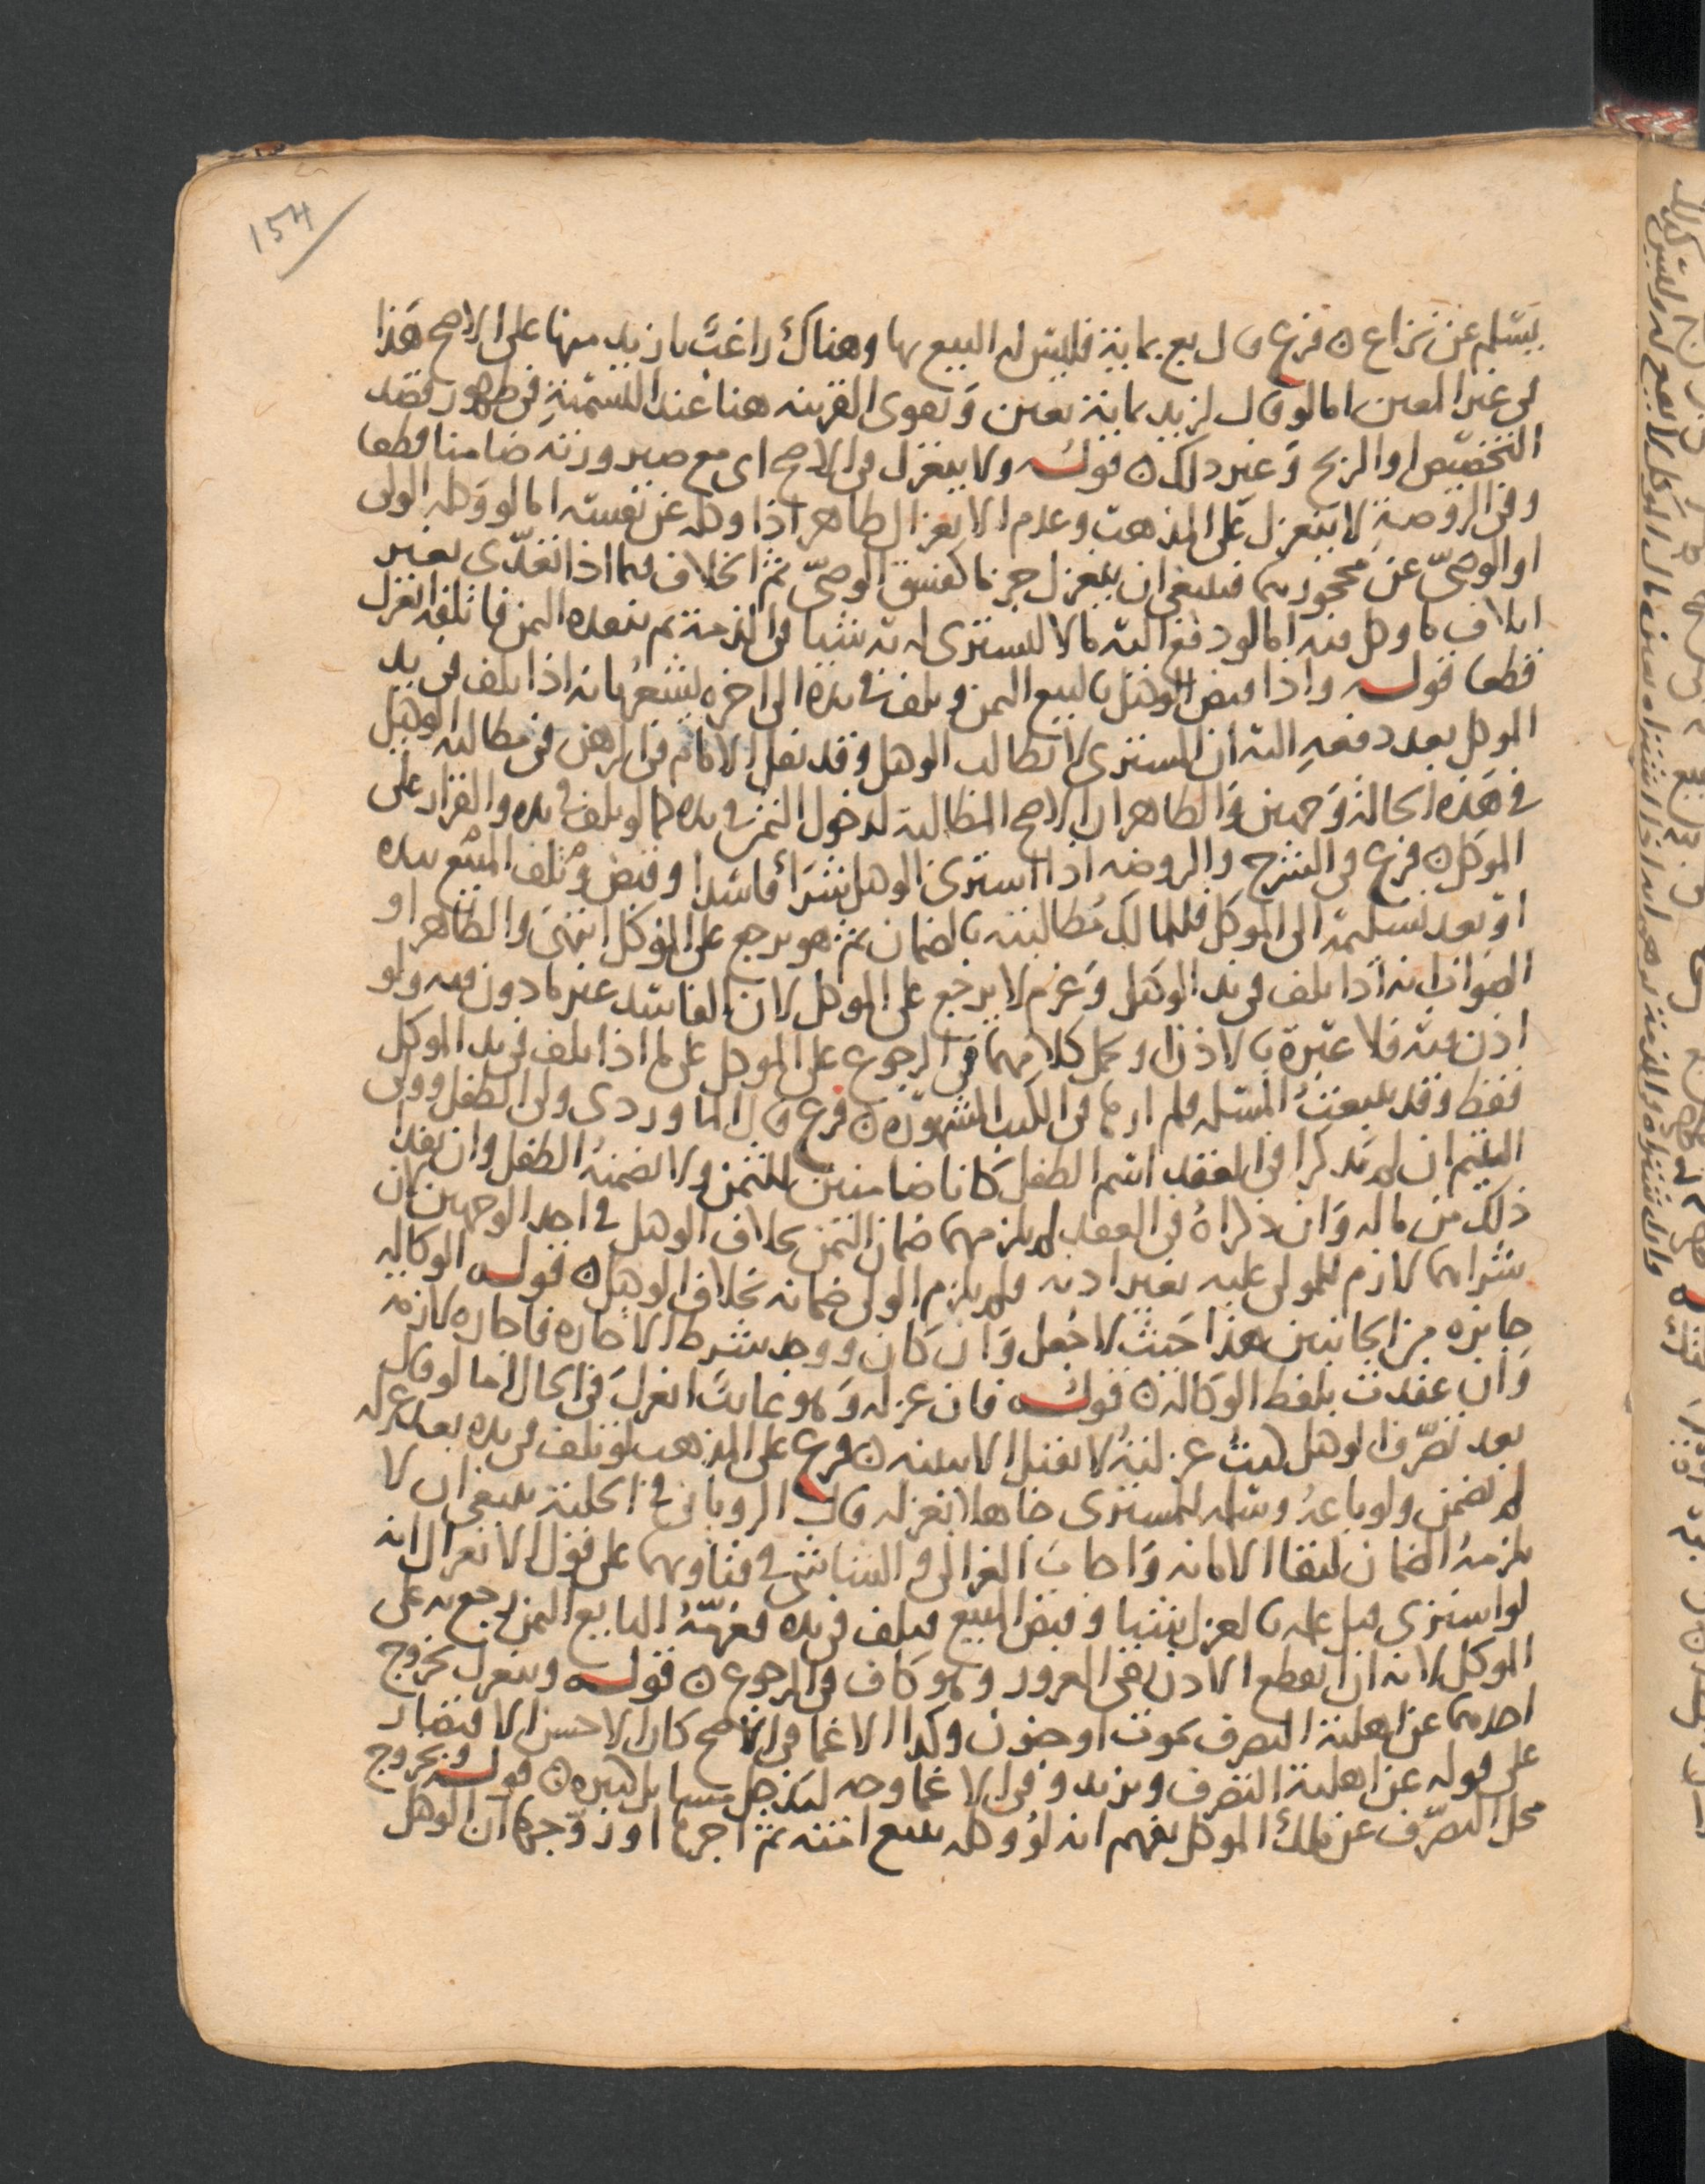 154
يسلم عن نزاع ن فرع قال بع بماية فليس له البيع بها وهناك راغب بازيد منها على الاصح هذا
في غير المعين اما لو قال لزيد بماية تعين وتقوى القرينه هنا عند التسمية في ظهور قصد
التخصيص او الربح وغير ذلك ن قوله ولا ينعزل في الاصح اي مع صيرورته ضامنا قطعا
وفي الروضة لا ينعزل على المذهب وعدم الانعزال ظاهر اذا وكله عن نفسه اما لو وكله الولي
او الوصي عن محجورهما فينبغي ان ينعزل جزما كفسق الوصي ثم الخلاف فيما اذا تعدى بغير
اتلاف ما وكل فيه اما لو دفع اليه مالا ليستري له به شيا في الذمة ثم ينقده الثمن فاتلفه انعزل
قطعا قوله واذا قبض الوكيل بالبيع الثمن وتلف في يده الى اخره يشعر بانه اذا تلف في يد
الموكل بعد دفعه اليه ان المستري لا يطالب الوكيل وقد نقل الامام في الرهن في مطالبه الوكيل
في هذه الحالة وجهين والظاهر ان الاصح المطالبة لدخول الثمن في يده كما لو تلف في يده والقرار على
الموكل ن فرع في الشرح والروضه اذا استرى الوكيل شراء فاسدا وقبض وتلف المبيع بيده
او بعد تسليمه الى الموكل فللمالك مطالبته بالضمان ثم هو يرجع على الموكل انتهى والظاهر او
الصواب انه اذا تلف في يد الوكيل وغرم لا يرجع على الموكل لان الفاسد غير ماذون فيه ولو
اذن فيه فلا عبرة بالاذن او يحمل كلامهما في الرجوع على الموكل على ما اذا تلف في يد الموكل
فقط وقد المسله فلم ارها في الكتب المشهوره ن فرع قال الماوردي ولي الطفل وولي
اليتيم ان لم يذكرا في العقد اسم الطفل كانا ضامنين للثمن ولا يضمنه الطفل وان نقدا
ذلك من ماله وان ذكراه في العقد لم يلزمهما ضمان الثمن بخلاف الوكيل في احد الوجهين لان
شراهما لازم للمولى عليه بغير اذنه فلم يلزم الولي ضمانه بخلاف الوكيل ن قوله الوكاله
جايزه من الجانبين هذا حيث لا جعل وان كان ووجد شرط الاجاره فاجاره لازمه
وان عقدت بلفظ الوكالة ن قوله فان عزله وهو غايب انعزل في الحال اما لو قال
بعد تصرف الوكيل كنت عزلته لا يقبل الا ببينه ن فرع على المذهب لو تلف في يده بعد عزله
لم يضمن ولو باعه وسلمه للمستري جاهلا بعزله قال الروياني في الحلية ينبغي ان لا
يلزمه الضمان لبقا الامانه واجاب الغزالي والشاشي في فتاويهما على قول الانعزال انه
لو استرى قبل علمه بالعزل شيا وقبض المبيع فتلف في يده فغرمه البايع الثمن رجع به على
الموكل لانه ان انقطع الاذن بقي الغرور وهو كاف في الرجوع ن قوله وينعزل بخروج
احدهما عن اهلية التصرف بموت او جنون وكذا الاغما في الاصح كان الاحسن الاقتصار
على قوله عن اهلية التصرف ويزيد وفي الاغما وجه ليدخل مسايل كثيره ن قوله وبخروج
محل التصرف عن ملك الموكل يفهم انه لو وكله ببيع امته ثم اجرها او زوجها ان الوكيل